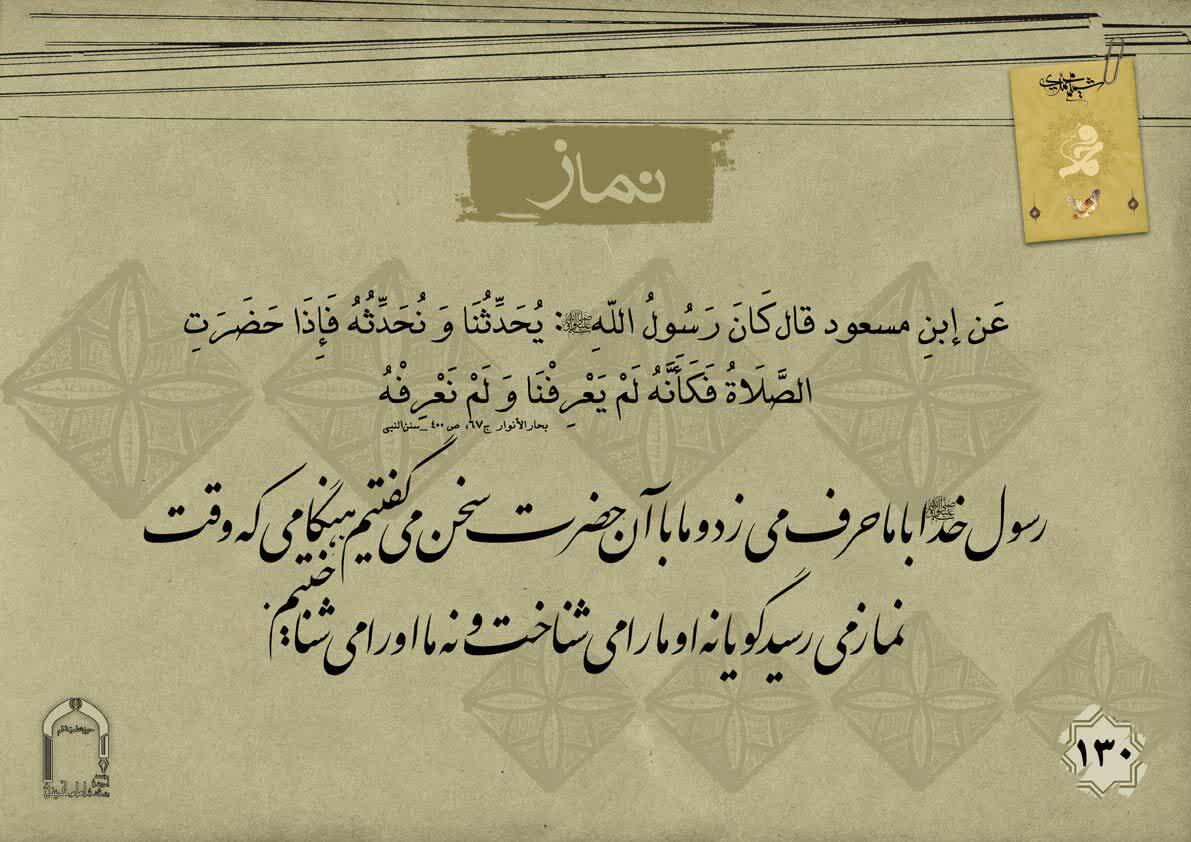 نماز
عَن إبنِ مسعود قال كَانَ رَسُولُ اللّهِ ﷺ: يُحَدِّثُنَا وَ نُحَدِّثُهُ فَإِذَا حَضَرَتِ
الصَّلَاةُ فَكَأَنَّهُ لَمْ يَعْرِفْنَا وَ لَمْ نَعْرِفْهُ
بحارالأنوار ج٦٧، ص ٤٠٠ _سنن‌النبی
رسول خدا ﷺ با ما حرف می زد و ما با آن حضرت سخن می گفتیم هنگامی که وقت
نماز می رسید گویا نه او ما را می شناخت و نه ما او را می شناختیم.
محمد
١٣٠